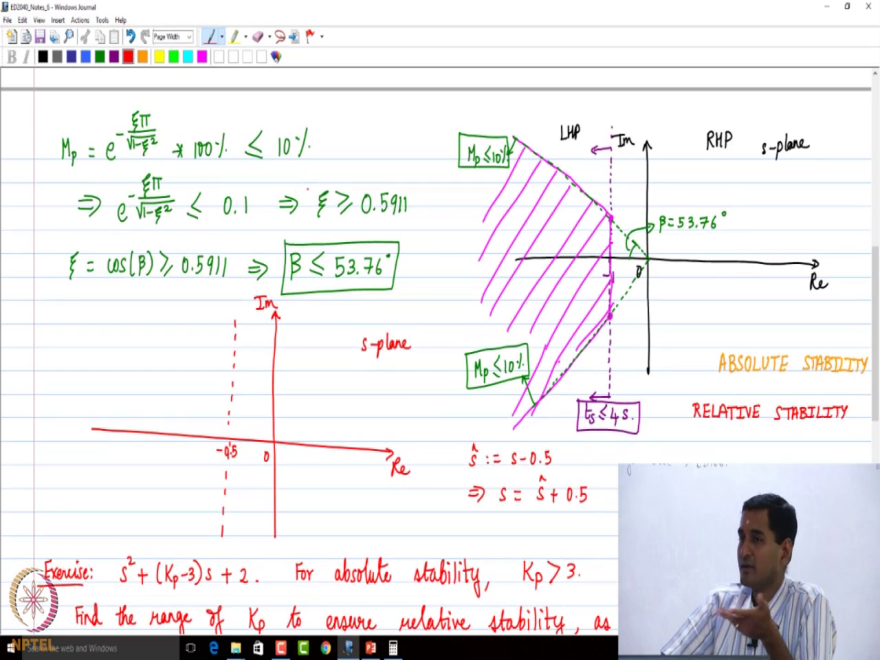 ED2040_Notes_6 - Windows Journal
File Edit View Insert Actions Tools Help
Page Width
B I
Mp = e^(-ξπ/√(1-ξ²)) * 100% ≤ 10%
⇒ e^(-ξπ/√(1-ξ²)) ≤ 0.1 ⇒ ξ ≥ 0.5911
ξ = cos(β) ≥ 0.5911 ⇒ β ≤ 53.76°
LHP
Im
RHP
s-plane
Mp ≤ 10%
β = 53.76°
-1
0
Re
Mp ≤ 10%
ts ≤ 4 s.
ABSOLUTE STABILITY
RELATIVE STABILITY
Im
s-plane
-0.5
0
Re
ŝ := s-0.5
⇒ s = ŝ + 0.5
Exercise: s² + (Kp-3)s + 2. For absolute stability, Kp > 3.
Find the range of Kp to ensure relative stability, as
NPTEL
the web and Windows